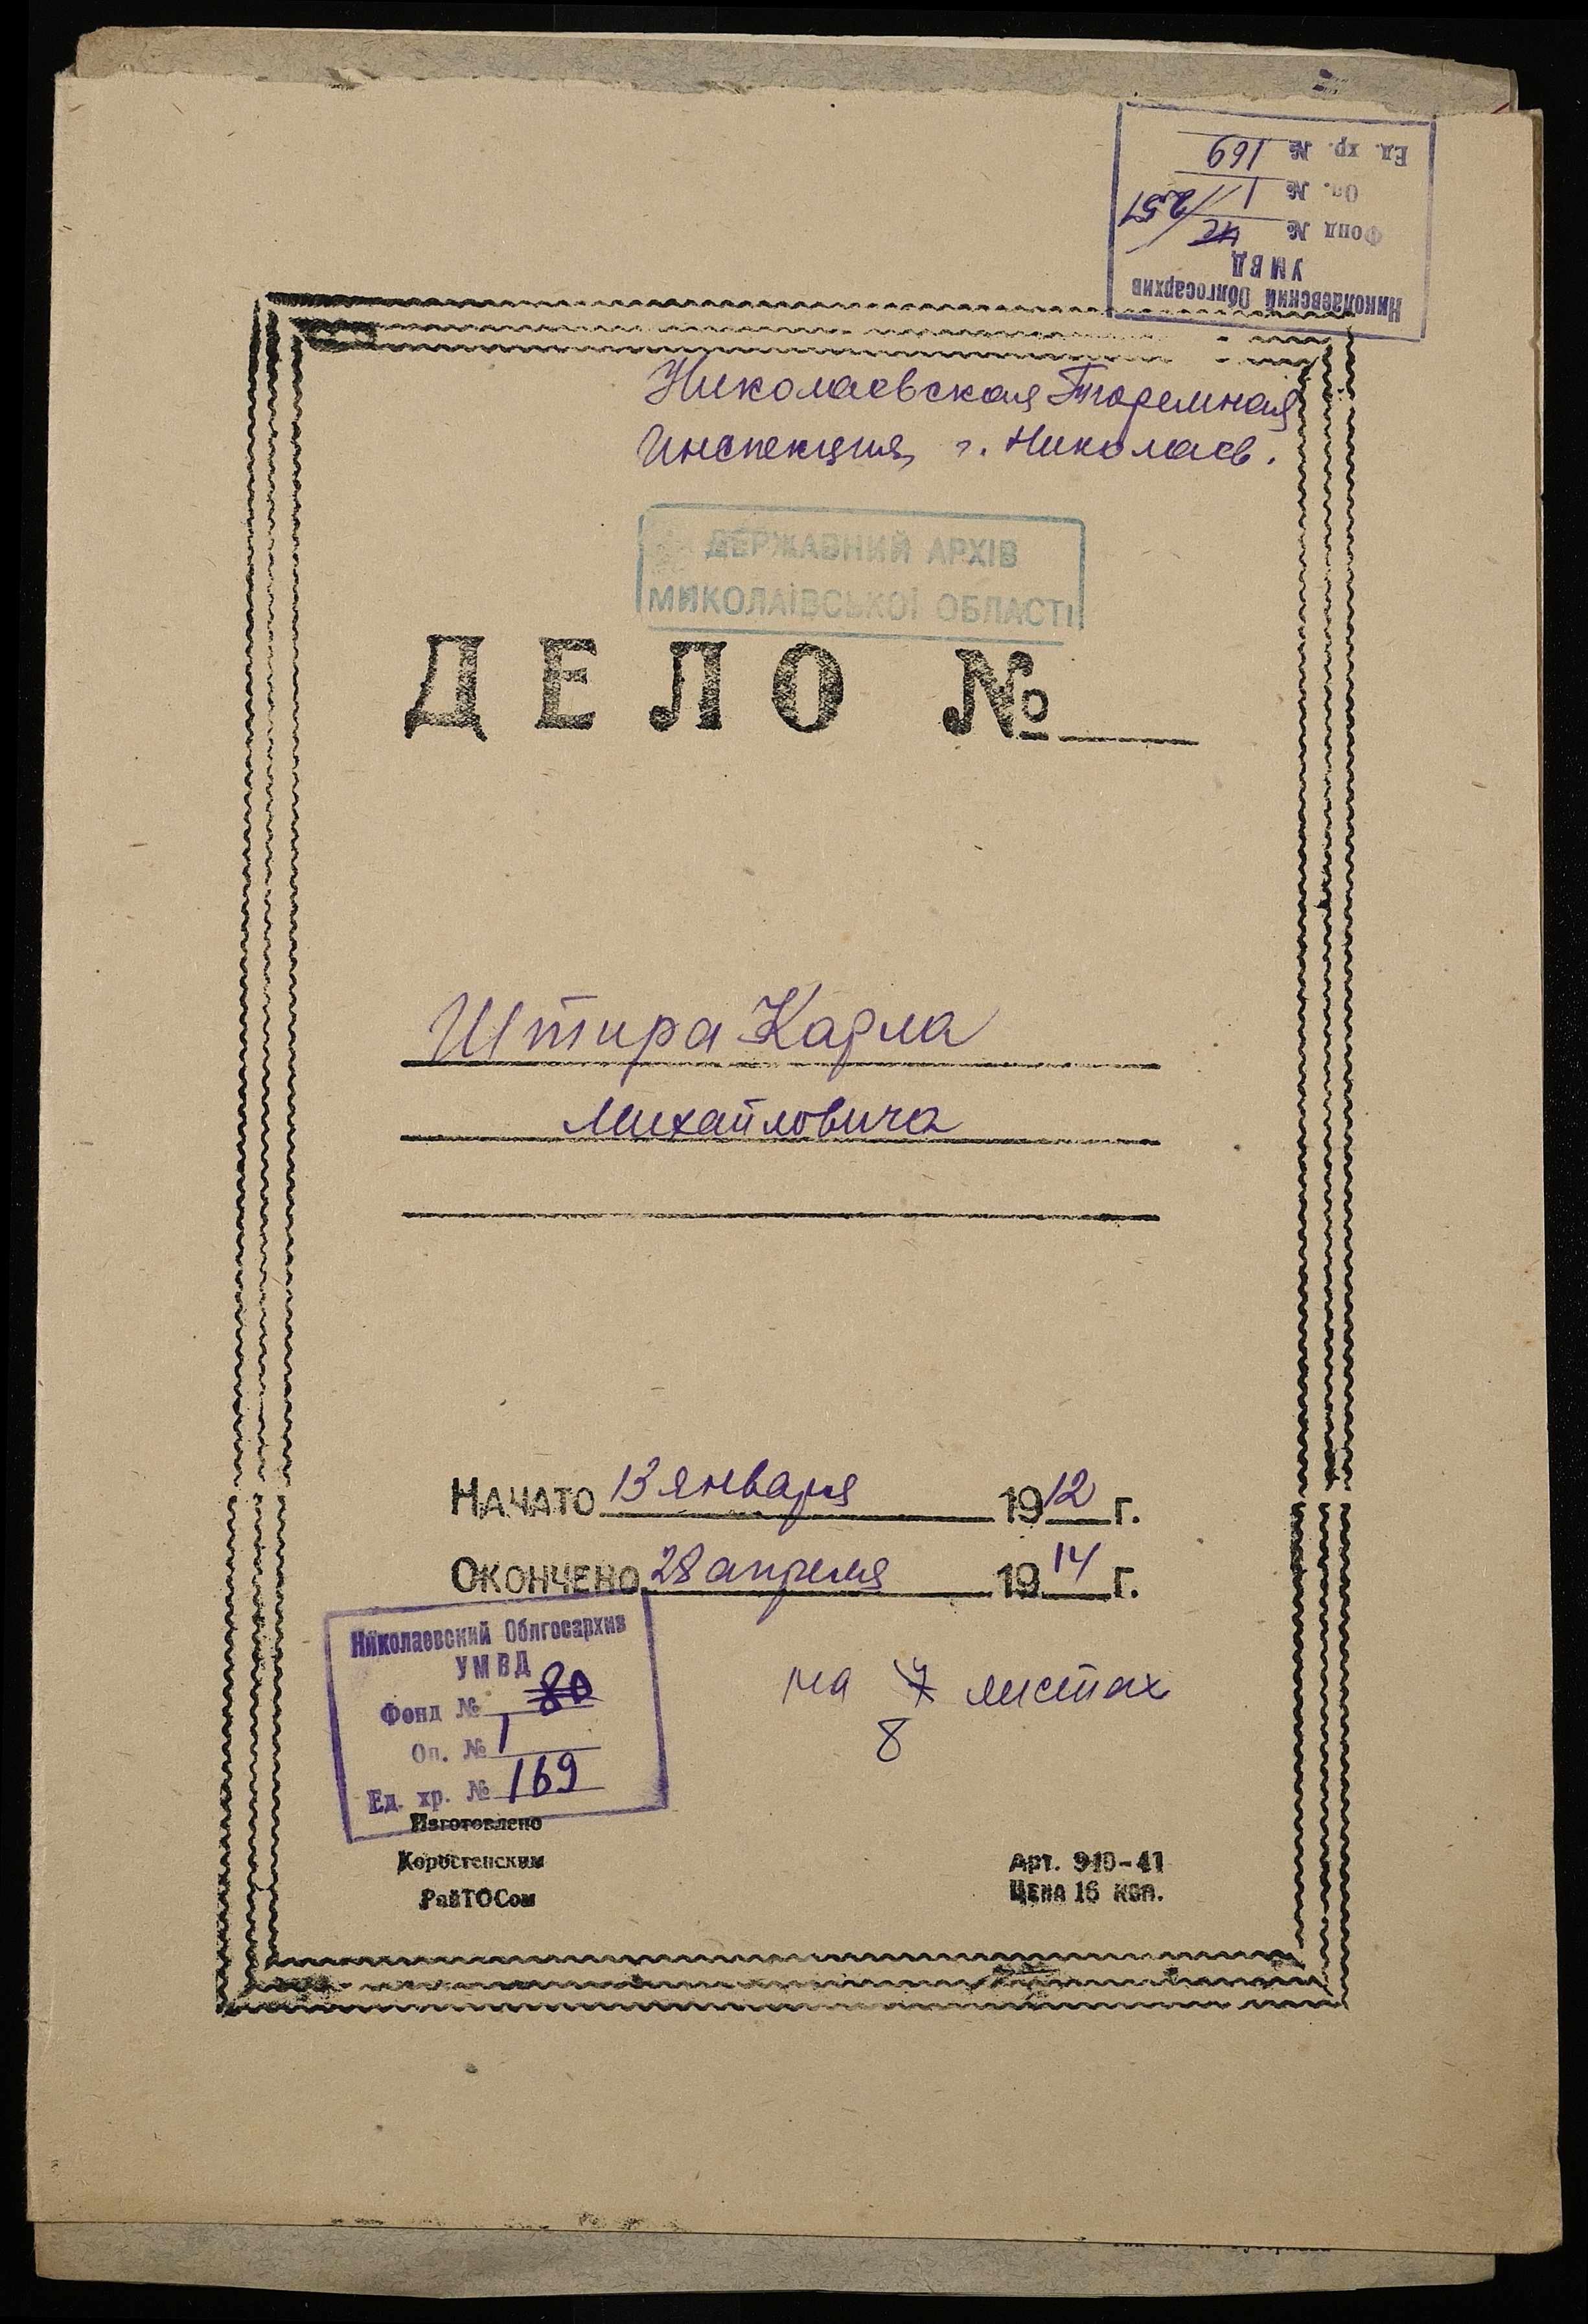 Николаевский Облгосархив
УМВД
Фонд №
Оп. № 1 / 251
Ед. хр. № 169
Николаевская Тюремная
Инспекция, г. Николаев.
ДЕРЖАВНИЙ АРХІВ
МИКОЛАЇВСЬКОЇ ОБЛАСТІ
ДЕЛО №
Штира Карла
Михайловича
НАЧАТО 13 января 1912 г.
ОКОНЧЕНО 28 апреля 1914 г.
Николаевский Облгосархив
УМВД
Фонд № 80
Оп. № 1
Ед. хр. № 169
на 7 листах
8
Изготовлено
Коростенским
РайТОСом
Арт. 940-41
ЦЕНА 16 коп.